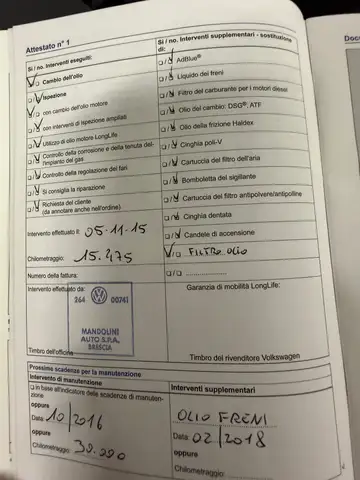 Attestato n° 1
Sì / no. Interventi eseguiti:
Cambio dell'olio
Ispezione
con cambio dell'olio motore
con interventi di ispezione ampliati
Utilizzo di olio motore LongLife
Controllo della corrosione e della tenuta dell'impianto del gas
Controllo della regolazione dei fari
Si consiglia la riparazione
Richiesta del cliente
(da annotare anche nell'ordine).
Intervento effettuato il: 05.11.15
Chilometraggio: 15.475
Numero della fattura:
Intervento effettuato da:
264 00741
MANDOLINI
AUTO S.P.A.
BRESCIA
Timbro dell'officina
Sì / no. Interventi supplementari - sostituzione
di:
AdBlue®
Liquido dei freni
Filtro del carburante per i motori diesel
Olio del cambio: DSG®; ATF
Olio della frizione Haldex
Cinghia poli-V
Cartuccia del filtro dell'aria
Bomboletta del sigillante
Cartuccia del filtro antipolvere/antipolline
Cinghia dentata
Candele di accensione
FILTRO OLIO
Garanzia di mobilità LongLife:
Timbro del rivenditore Volkswagen
Prossime scadenze per la manutenzione
Intervento di manutenzione
in base all'indicatore delle scadenze di manutenzione
oppure
Data: 10/2016
oppure
Chilometraggio: 30.000
Interventi supplementari
OLIO FRENI
Data: 02/2018
oppure
Chilometraggio:
Doc